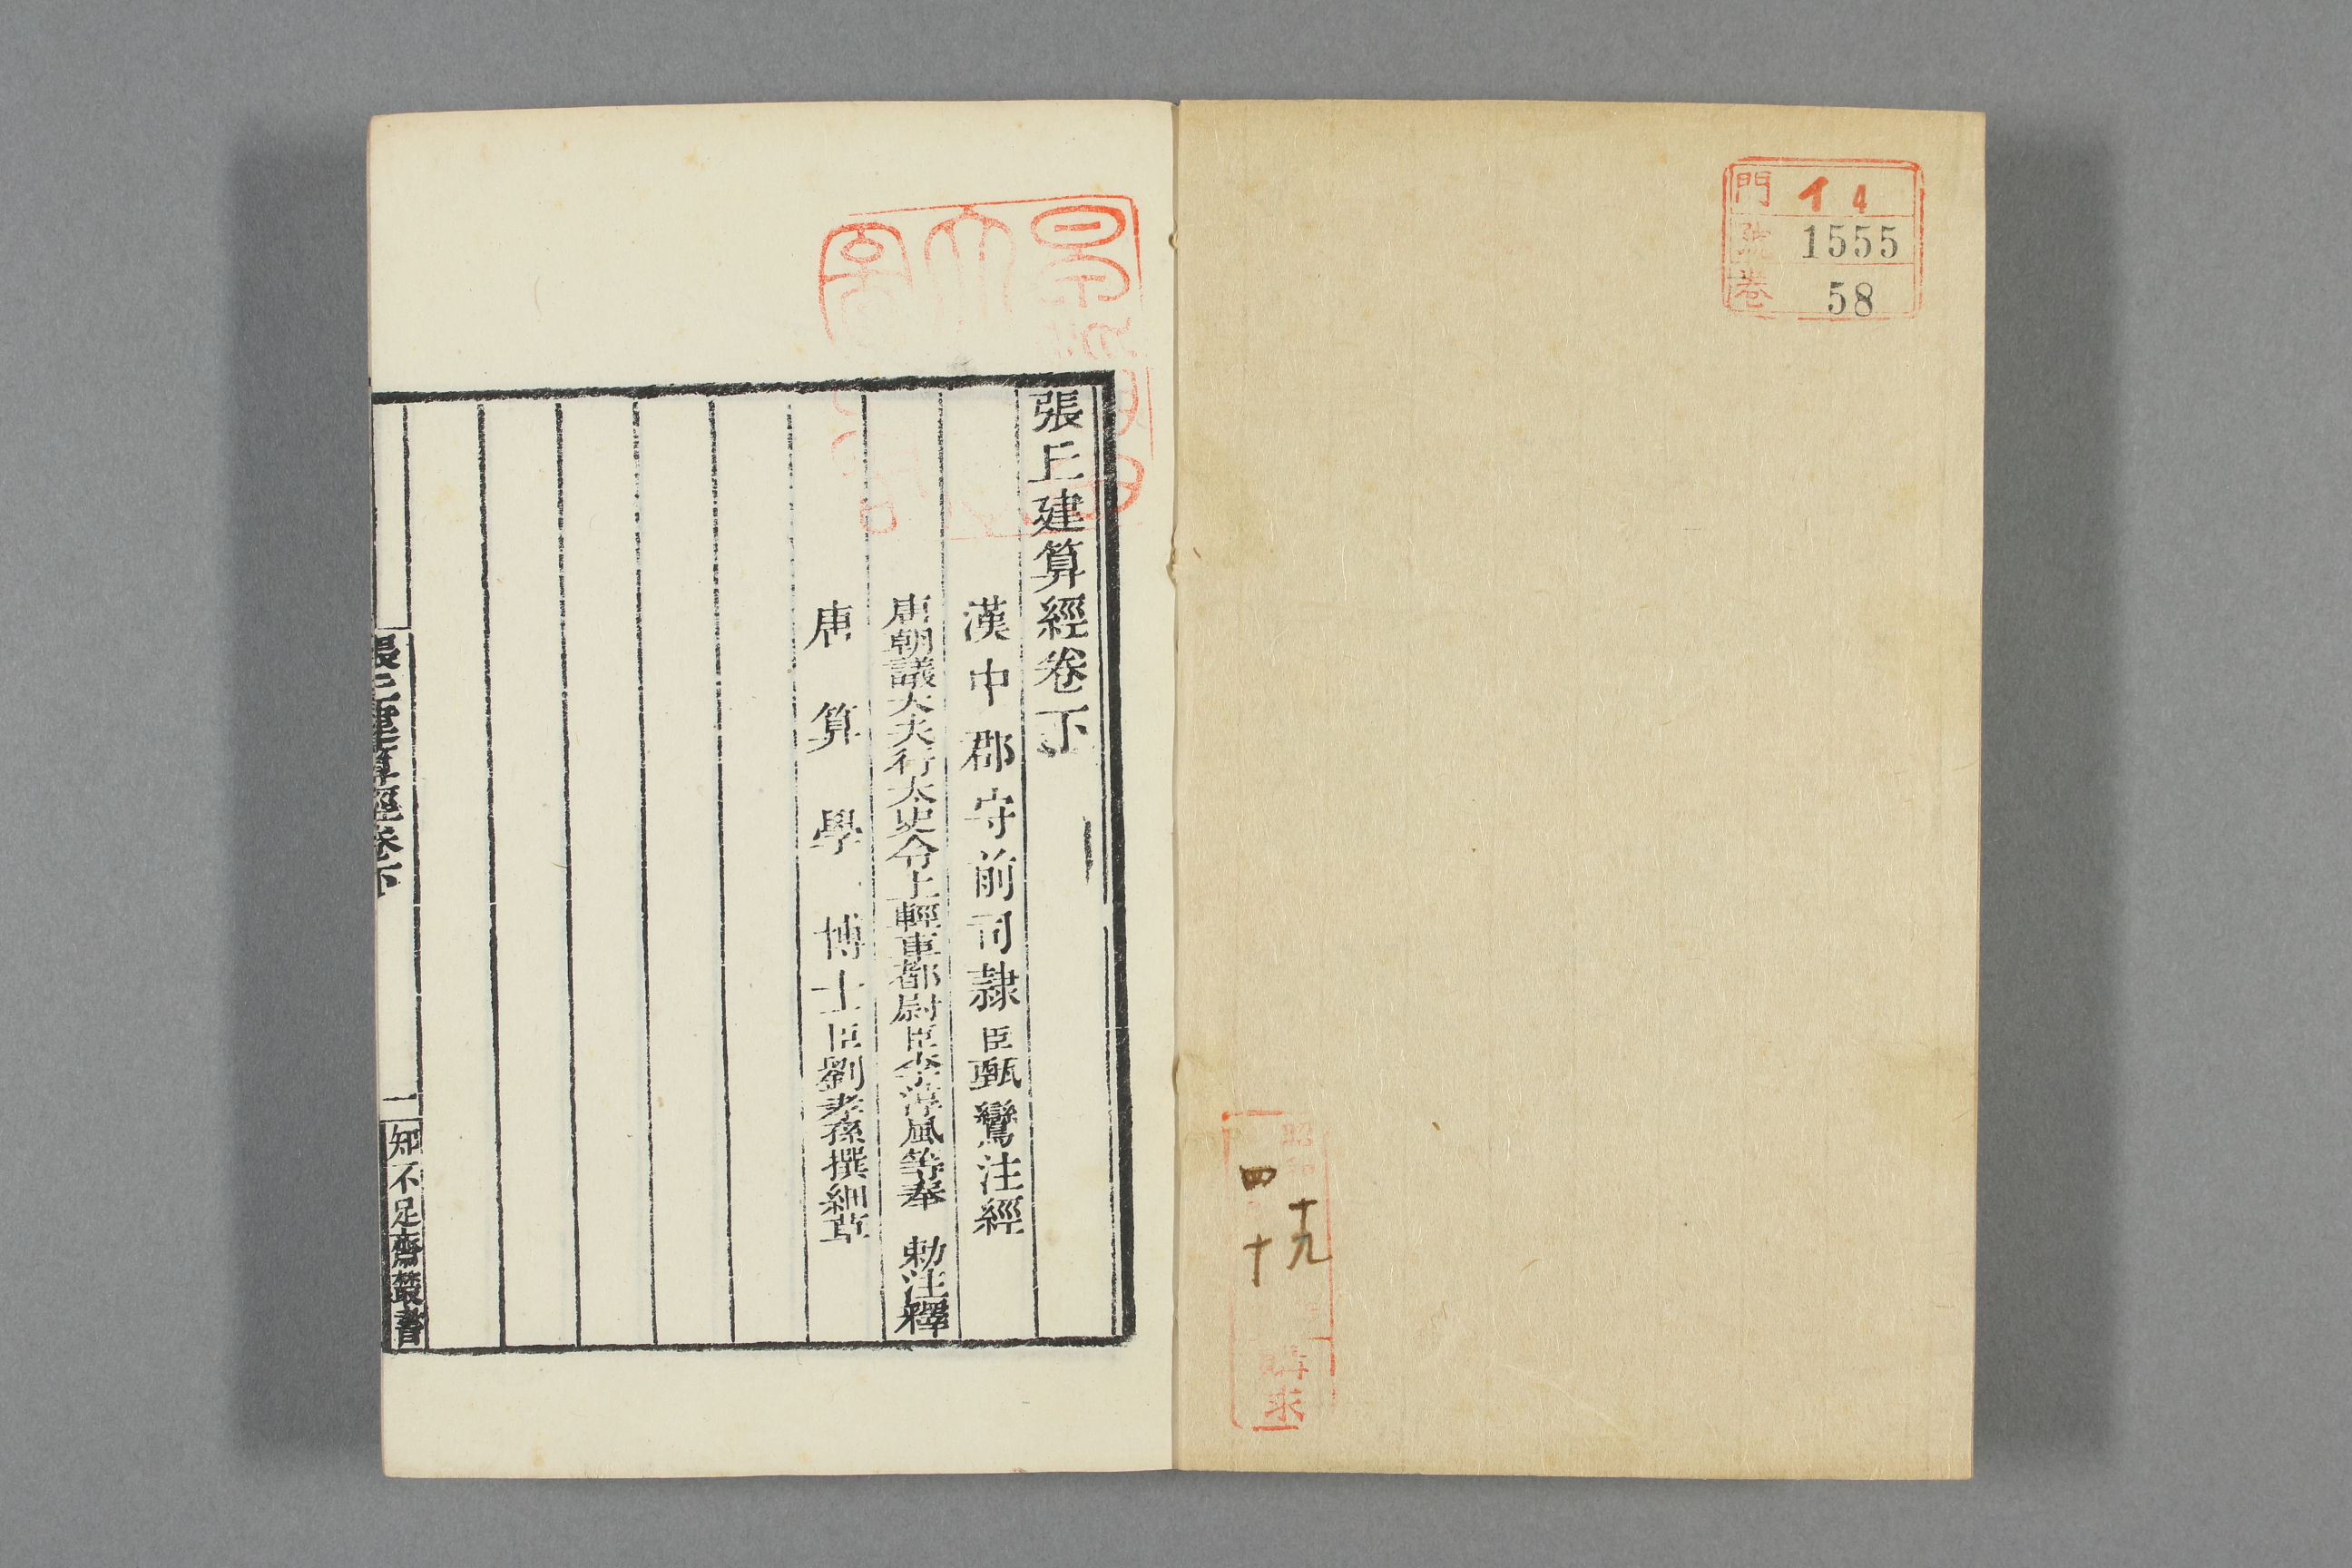 門 イ 4
號 1555
卷 58
十九
四十
昭和
購求
張丘建算經卷下
漢中郡守前司隸臣甄鸞注經
唐朝議大夫行太史令上輕車都尉臣李淳風等奉 勅注釋
唐算學博士臣劉孝孫撰細草
張丘建算經卷下 一 知不足齋叢書